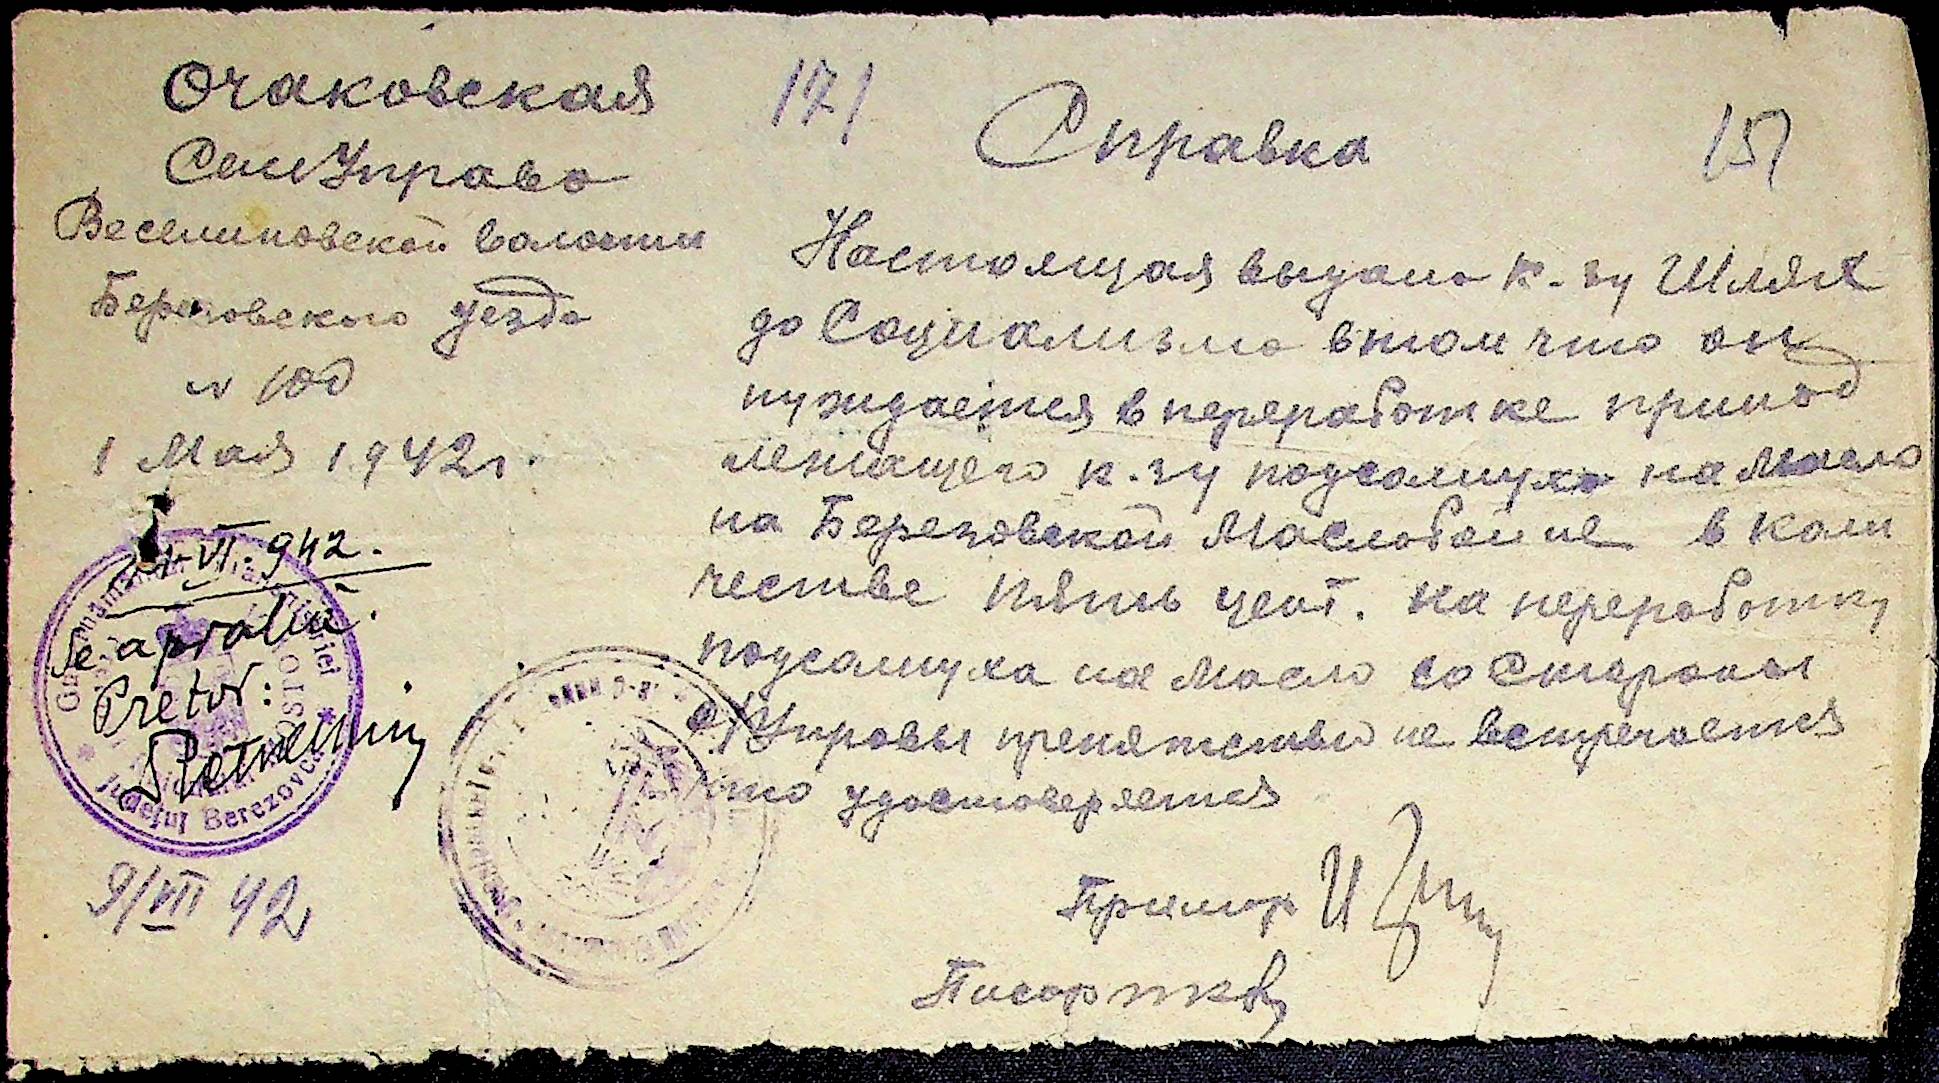 Очаковская
СелУправа
Веселиновской волости
Березовского уезда
N 100
1 Мая 1942 г.
171
Справка
151
Настоящая выдана к-зу Шлях
до Социализма в том что он
нуждается в переработке принад
лежащего к-зу подсолнуха на масло
на Березовской Маслобойне в коли
честве пять цент. на переработку
подсолнуха на масло со стороны
с/Управы препятствий не встречается
что удостоверяется
Примар
Писарь
VI. 942.
Se aprobă.
Pretor:
Județul Berezovca
9/VII 42